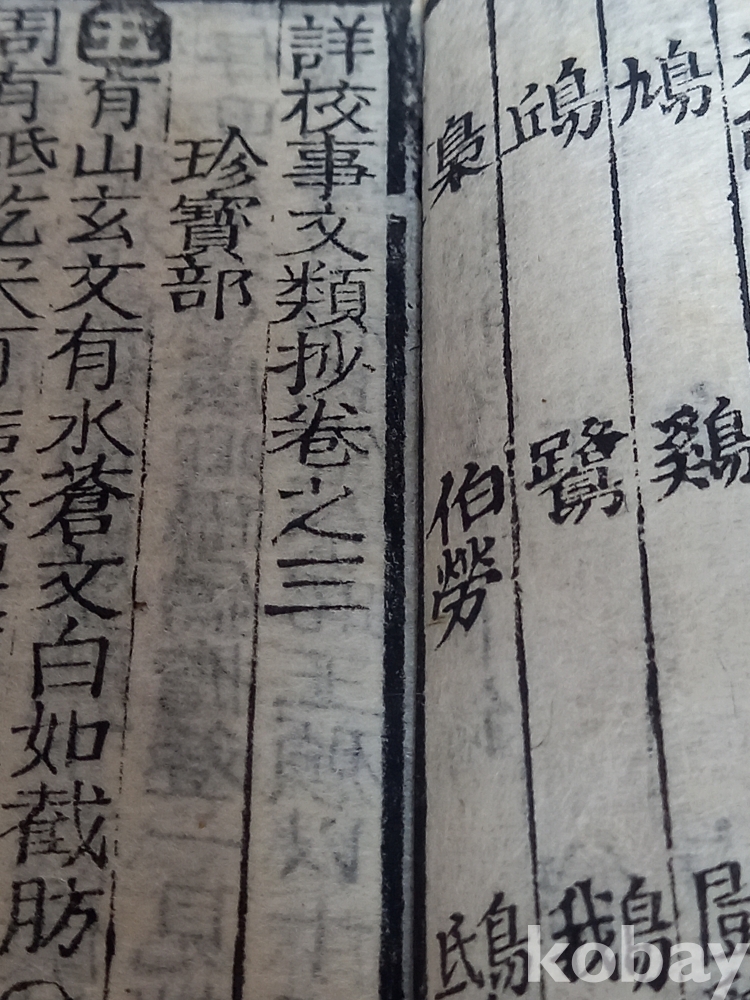 鳩 鷄
鴟 鷺 鵝
梟 伯勞 鴟
詳校事文類抄卷之三
珍寶部
玉 有山玄文有水蒼文白如截肪
周有砥
kobay